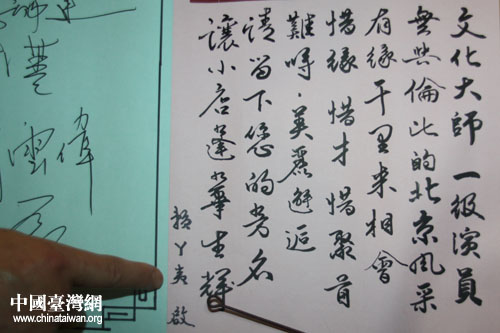 文化大師一級演員
無與倫比的北京風采
有緣千里來相會
惜緣惜才惜聚首
難得·美麗邂逅
請留下您的芳名
讓小店蓬蓽生輝
丫 啟
雲偉
中國臺灣網
www.chinataiwan.org